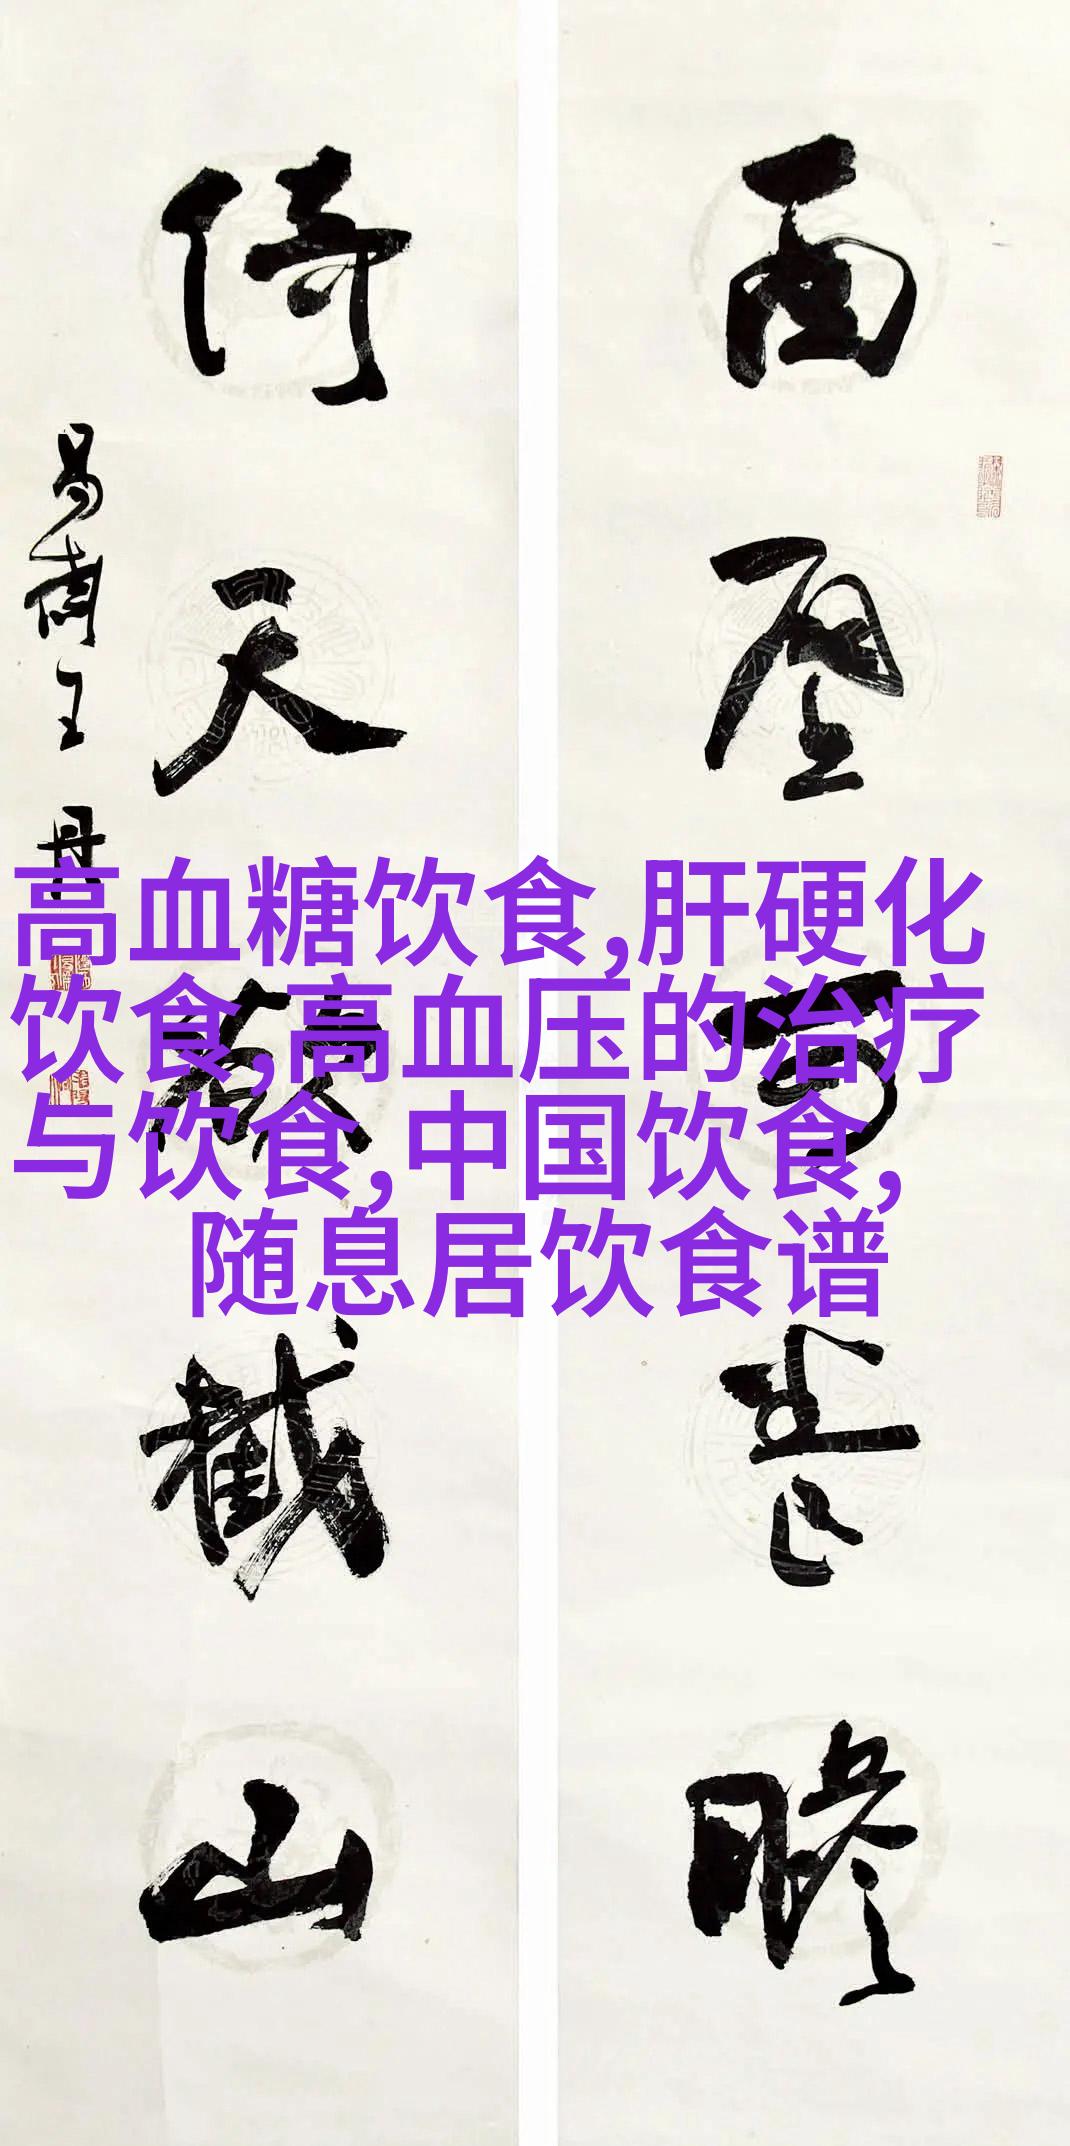 高血糖饮食,肝硬化
饮食,高血压的治疗
与饮食,中国饮食,
随息居饮食谱
面壁可瞻
倚天截山
王丹